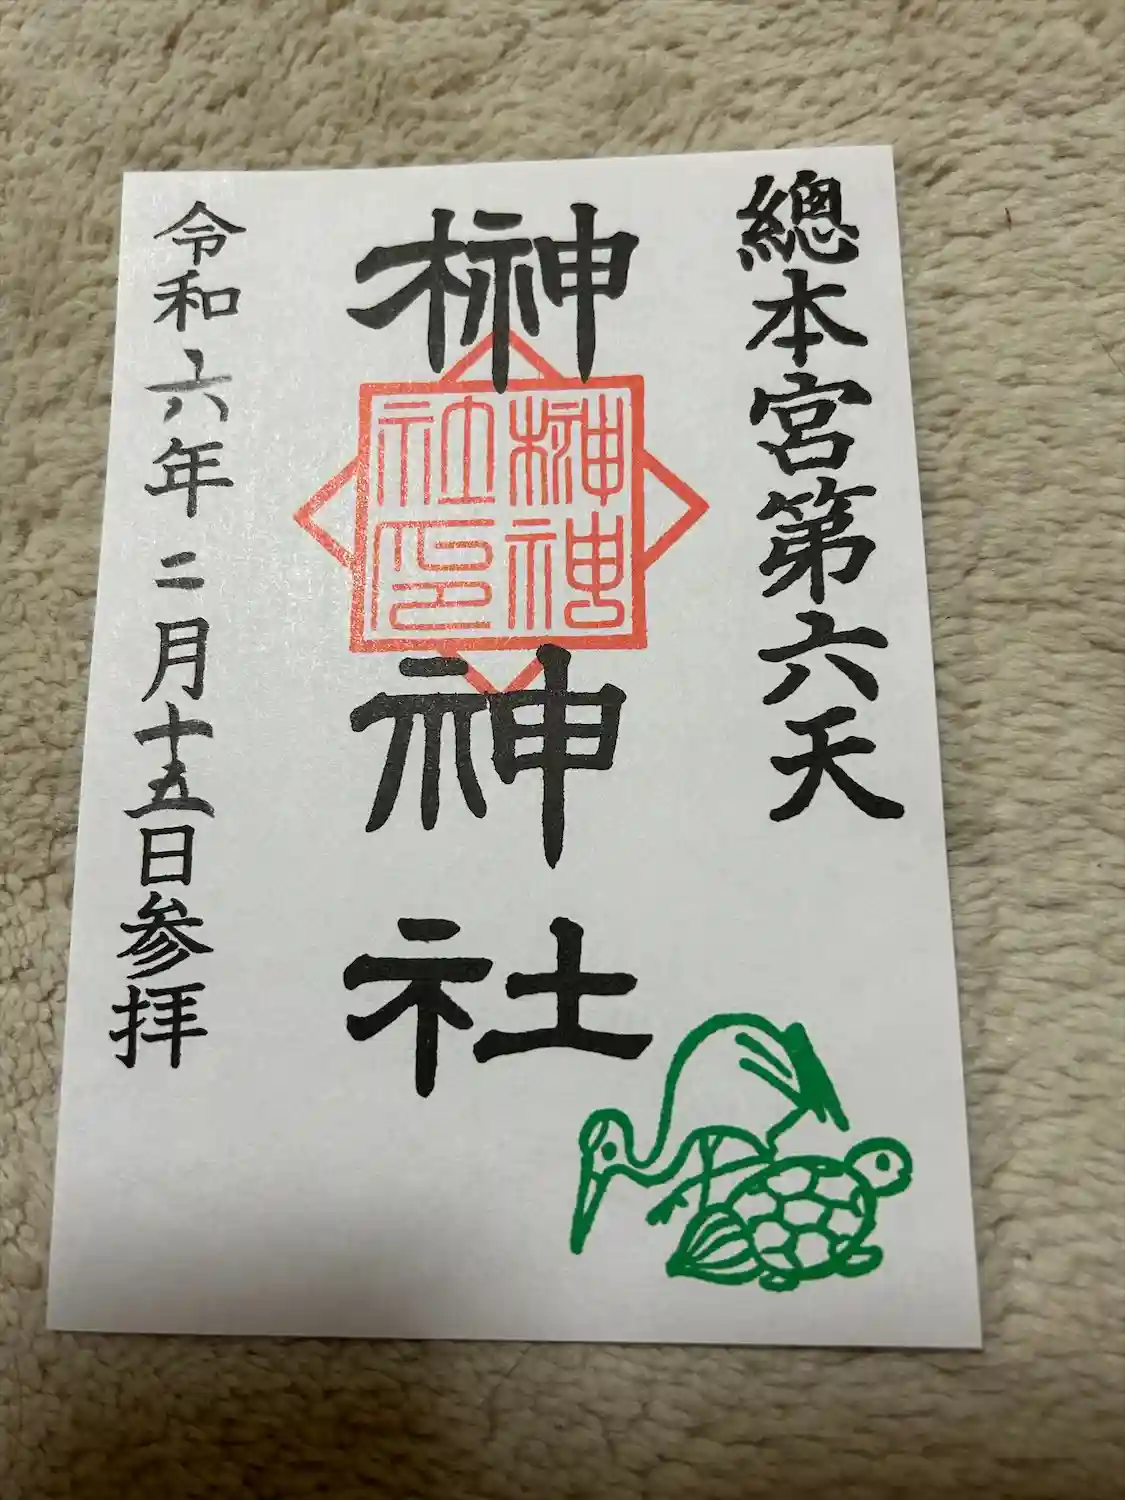 總本宮第六天
榊神社
榊神社印
令和六年二月十五日参拝